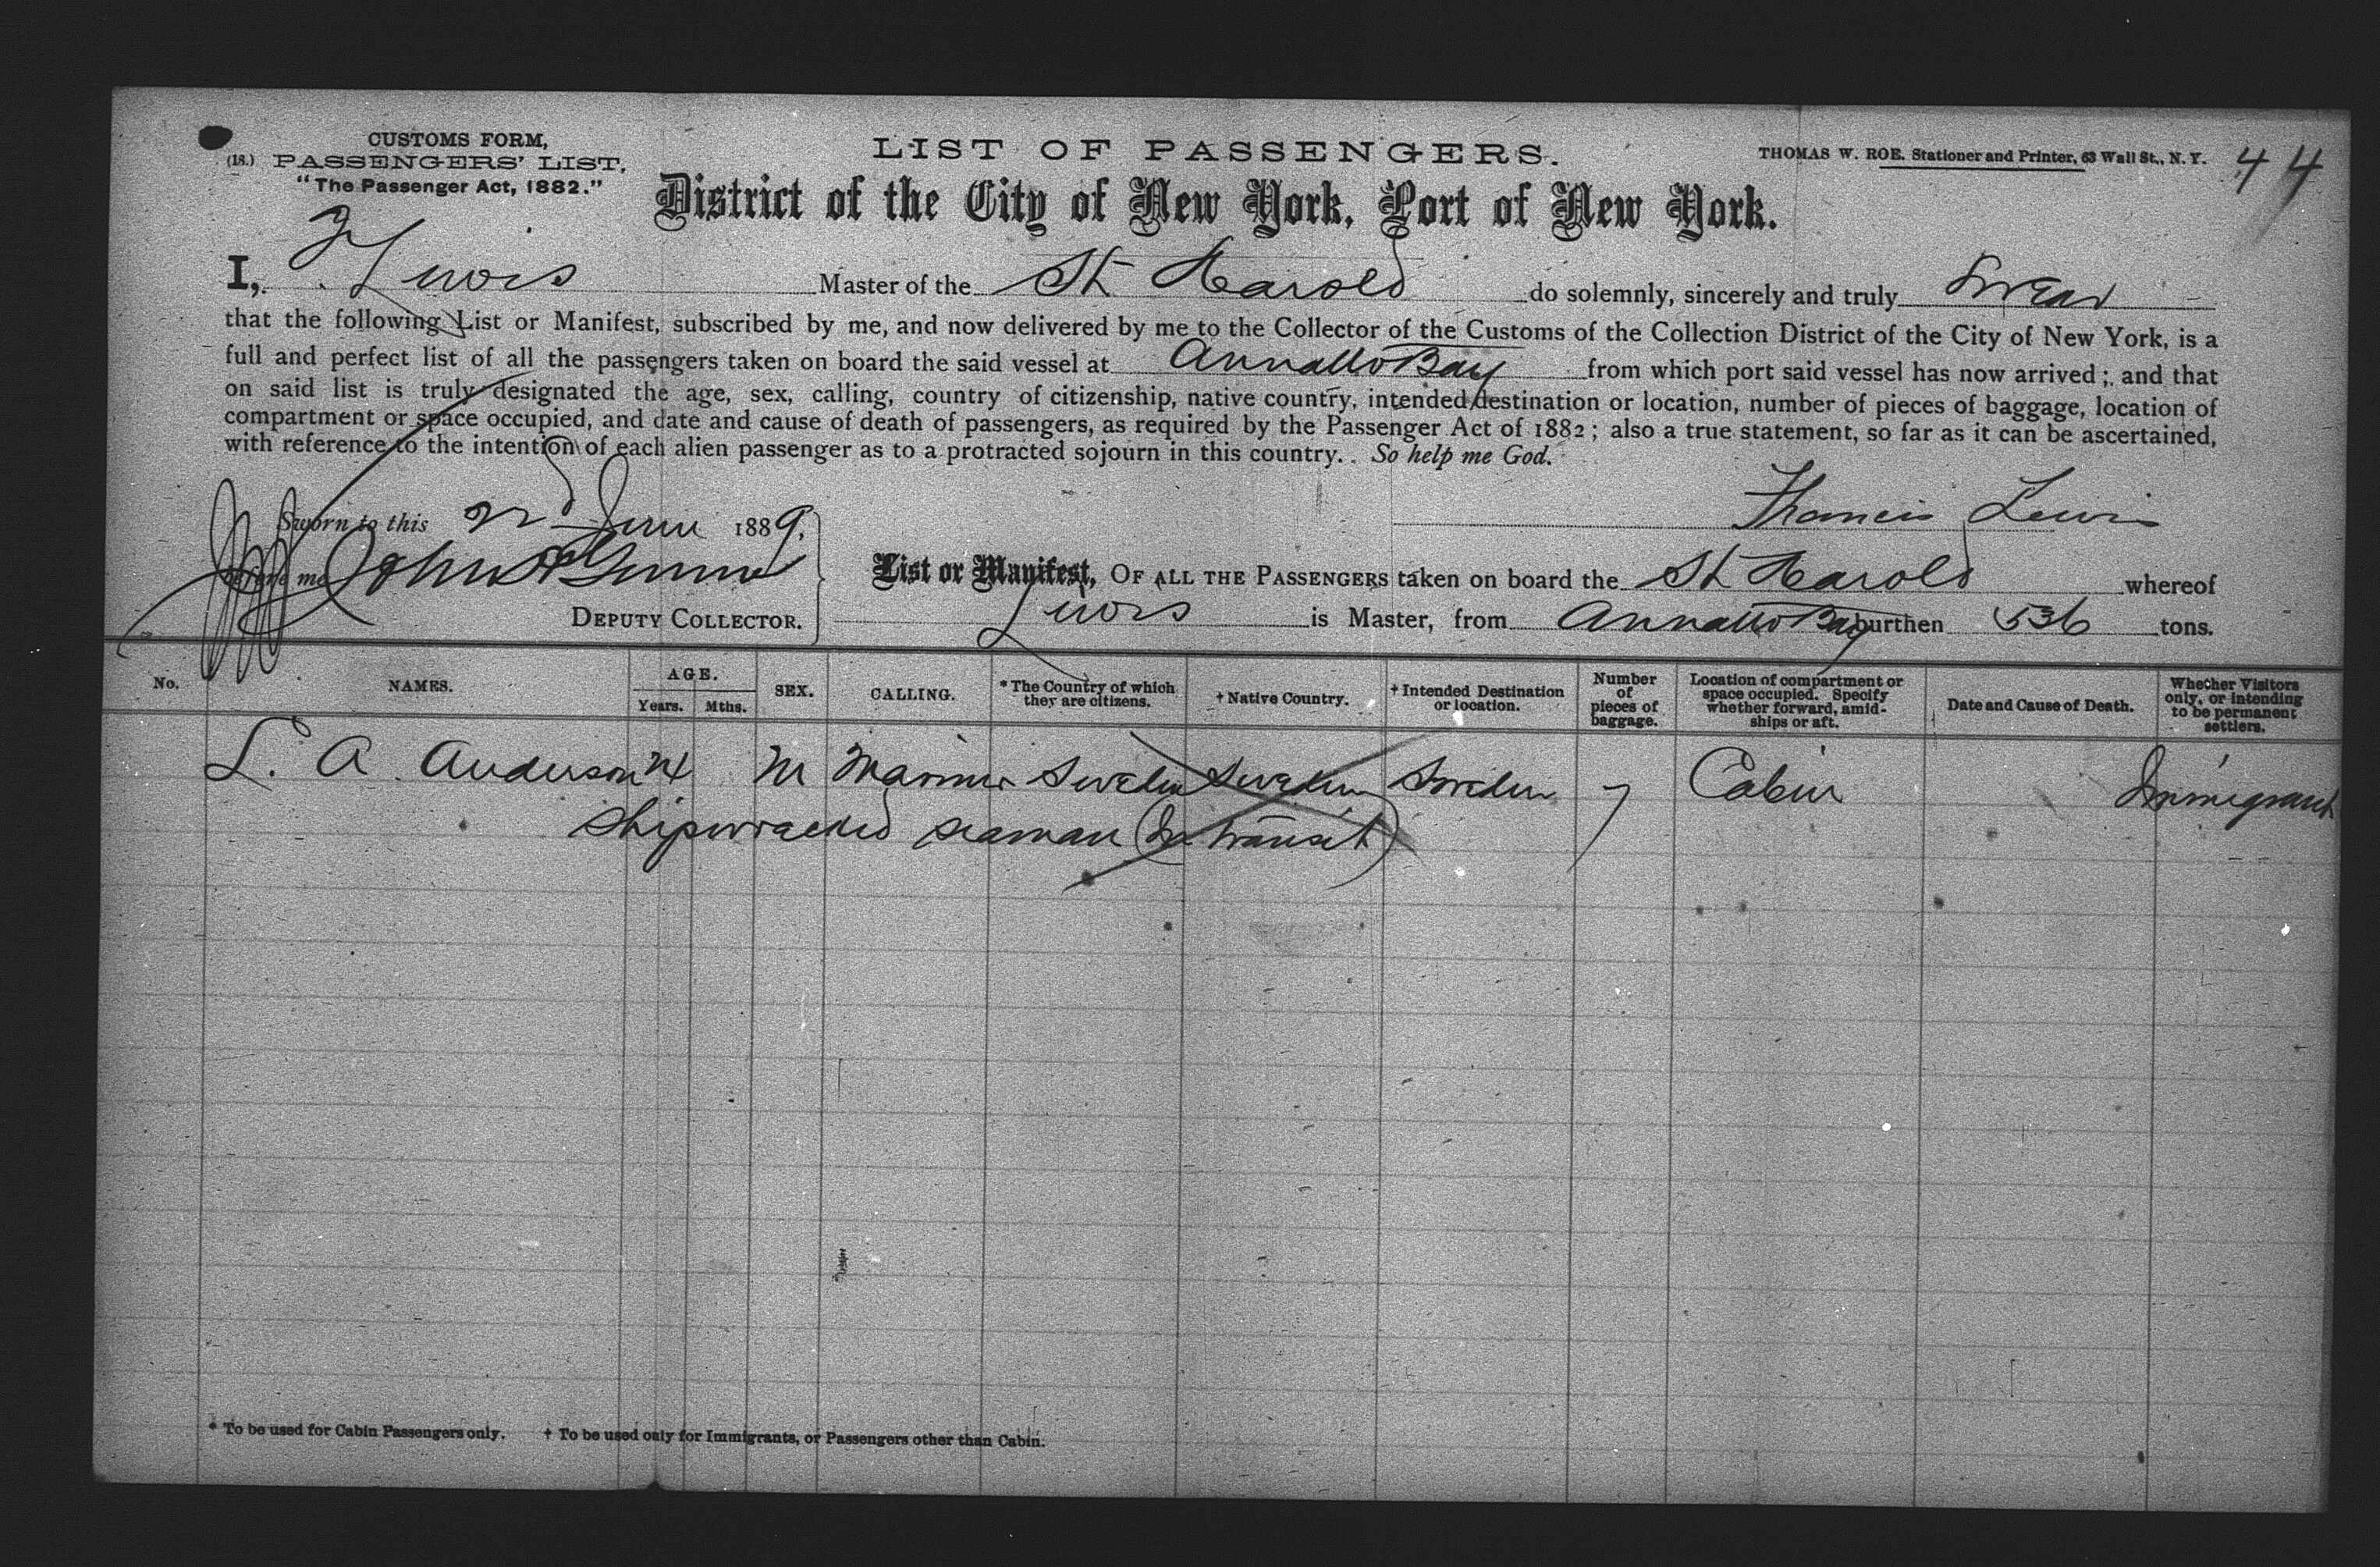 CUSTOMS FORM,
(18.) PASSENGERS' LIST,
"The Passenger Act, 1882."
LIST OF PASSENGERS.
THOMAS W. ROE. Stationer and Printer, 63 Wall St., N. Y.
44
District of the City of New York, Port of New York.
I, F. Lewis Master of the St Harold do solemnly, sincerely and truly swear
that the following List or Manifest, subscribed by me, and now delivered by me to the Collector of the Customs of the Collection District of the City of New York, is a
full and perfect list of all the passengers taken on board the said vessel at Annatto Bay from which port said vessel has now arrived; and that
on said list is truly designated the age, sex, calling, country of citizenship, native country, intended destination or location, number of pieces of baggage, location of
compartment or space occupied, and date and cause of death of passengers, as required by the Passenger Act of 1882; also a true statement, so far as it can be ascertained,
with reference to the intention of each alien passenger as to a protracted sojourn in this country. So help me God.
Francis Lewis
Sworn to this 22d June 1889,
before me John
DEPUTY COLLECTOR.
List or Manifest, OF ALL THE PASSENGERS taken on board the St Harold whereof
Lewis is Master, from Annatto Bay burthen 536 tons.
No. NAMES. AGE. Years. Mths. SEX. CALLING. * The Country of which they are citizens. † Native Country. † Intended Destination or location. Number of pieces of baggage. Location of compartment or space occupied. Specify whether forward, amidships or aft. Date and Cause of Death. Whether Visitors only, or intending to be permanent settlers.
L. A. Anderson 24 M Mariner Sweden Sweden Sweden 7 Cabin Immigrant
Shipwracked seaman (In transit)
* To be used for Cabin Passengers only. † To be used only for Immigrants, or Passengers other than Cabin.